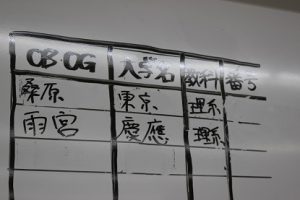 OB·OG 大学名 教科 番号
桑原 東京 理系
雨宮 慶應 理系